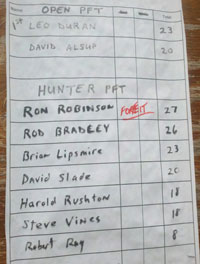 Name OPEN PFT Total
1st LEO DURAN 23
DAVID ALSUP 20
HUNTER PFT
RON ROBINSON FOREIT 27
ROD BRADLEY 26
Brian Lipsmire 23
David Slade 20
Harold Rushton 18
Steve Vines 18
Robert Ray 8